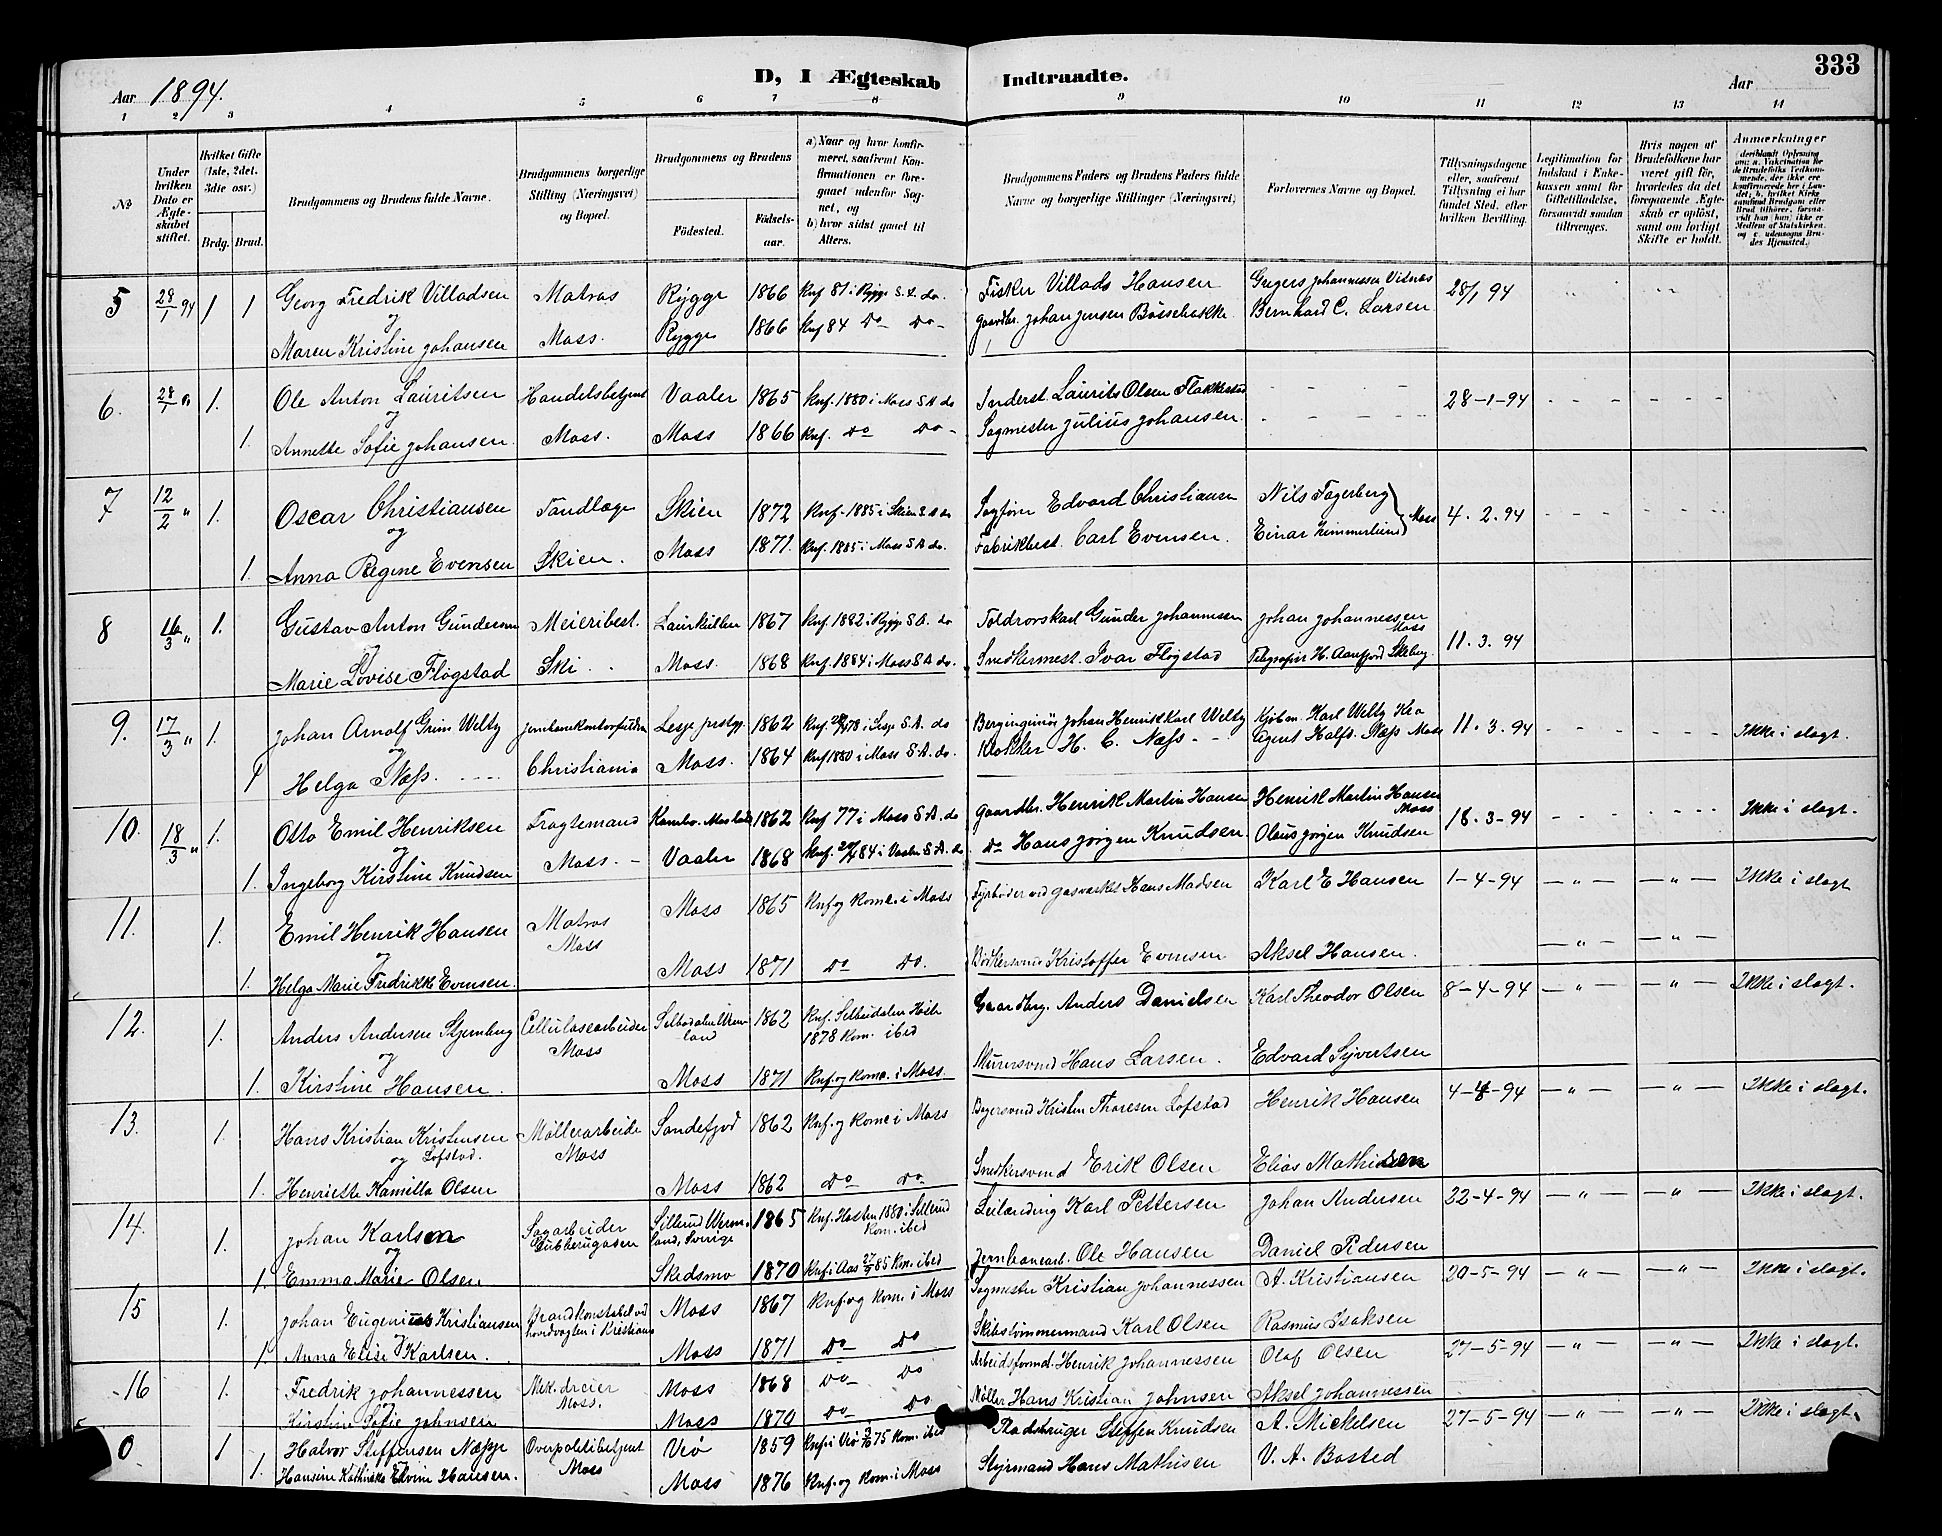 333
Aar 1894. D, I Ægteskab Indtraadte. Aar
1 2 3 4 5 6 7 8 9 10 11 12 13 14
№
Under hvilken Dato er Ægteskabet stiftet.
Hvilket Gifte (1ste, 2det, 3die osv.)
Brdg. Brud.
Brudgommens og Brudens fulde Navne.
Brudgommens borgerlige Stilling (Næringsvei) og Bopæl.
Brudgommens og Brudens
Födested. Födselsaar.
a) Naar og hvor konfirmeret, saafremt Konfirmationen er foregaaet udenfor Sognet, og
b) hvor sidst gaaet til Alters.
Brudgommens Faders og Brudens Faders fulde Navne og borgerlige Stillinger (Næringsvei)
Forlovernes Navne og Bopæl.
Tillysningsdagene eller, saafremt Tillysning ei har fundet Sted, efter hvilken Bevilling.
Legitimation for Indskud i Enkekassen samt for Giftetilladelse, forsaavidt saadan tiltrænges.
Hvis nogen af Brudefolkene har været gift för, hvorledes da det foregaaende Ægteskab er oplöst, samt om lovligt Skifte er holdt.
Anmærkninger
5 28/1 94 1 1 Georg Fredrik Villadsen Matros Rygge 1866 Knf 81 i Rygge S. A. do. Fisker Villads Hansen Gregers Johannessen Vidnes 28/1 94
og
Maren Kristine Johansen Moss. Rygge 1866 Knf 84 Do Do Gaardbr. Johan Jensen Bössebakke Bernhard C. Larsen
6. 28/1 " 1. Ole Anton Lauritsen Handelsbetjent Vaaler 1865 Knf. 1880 i Moss S A do Inderst. Laurits Olsen Flakkestad 28-1-94
og
1. Annette Sofie Johansen Moss. Moss 1866 Knf. Do Do Sagmester Julius Johansen.
7 12/2 " 1. Oscar Christiansen Tandlæge Skien 1872 Knf. 1885 i Skien S A do Sagförer Edvard Christiansen Nils Fagerberg Moss 4. 2. 94
og
1. Anna Regine Evensen Skien. Moss 1871. Knf. 1885 i Moss S A do. Fabrikbest. Carl Evensen. Einar Zimmerlund
8 16/3 " 1. Gustav Anton Gundersen Meieribest. Laurkullen 1867 Knf. 1882 i Rygge S A. do Toldrorskarl Gunder Johannessen Johan Johannessen Moss 11. 3. 94
og
Marie Lovise Flogstad Ski Moss. 1868 Knf. 1884 i Moss S A do. Snedkermest. Ivar Flogstad Telegrafist H. Aanfjord Skeberg.
9. 17/3 " 1. Johan Arnolf Grim Weltz Jernbanekontorfuldm. Lesje prstgj. 1862 Knf 78 i Lesje S. A. do Bergingeniör Johan Henrik Karl Weltz Kjöbm. Karl Weltz Kra 11. 3. 94 Ikke i slægt.
og
1 Helga Næss. Christiania Moss. 1864 Knf 1880 i Moss S. A. do. Klokker H. C. Næss Agent Halfd. Næss Moss
10. 18/3 " 1. Otto Emil Henriksen Fragtemand Kambo. Moss lands 1862 Knf 77 i Moss S. A. do Gaardbr. Henrik Martin Hansen Henrik Martin Hansen Moss 18. 3-94 Ikke i slægt.
og
1. Ingeborg Kirstine Knudsen Moss. Vaaler 1868 Knf. 84 i Vaaler S. A. do Do Hans Jörgen Knudsen Olaus Jörgen Knudsen
11. 1. Emil Henrik Hansen Matros Moss Moss 1865 Knf. og Kom. i Moss Fyrböder ved Gasværket Hans Madsen Karl E Hansen 1-4-94 — " — — " — Ikke i slægt
og
1. Helga Marie Fredrikke Evensen. Moss 1871 Do Do. Bödkersvend Kristoffer Evensen Aksel Hansen. — " — — " —
12. 1. Anders Andersen Stjernberg Cellulosearbeider Moss Selbodalen Vermland 1862 Knf. Selbodalen Höst 1878 Kom. ibid Gaardbrg. Anders Danielsen Karl Theodor Olsen 8-4-94 — " — — " — Ikke i slægt.
og
1. Kirstine Hansen. Moss 1871 Knf. og Kom. i Moss. Murersvend Hans Larsen. Edvard Syvertsen
13. 1. Hans Kristian Kristensen Lofstad. Möllerarbeide Moss Sandefjod 1862 Knf. og Kom i Moss Bagersvend Kristen Thoresen Lofstad Henrik Hansen 4-4-94 — " — — " — Ikke i slægt.
og
1. Henriette Kamilla Olsen Moss 1862 Do Do. Snedkersvend Erik Olsen Elias Mathisen
14. 1. Johan Karlsen Sagarbeider Sillerud Vermland, Sverige 1865 Knf. Hösten 1880 i Sillerud Kom. ibid Leilænding Karl Pettersen Johan Andersen 22-4-94 — " — — " — Ikke i slægt.
og
1. Emma Marie Olsen Skedsmo 1870 Knf i Aas 27/9 85 Kom. ibid Jernbanearb. Ole Hansen Daniel Pedersen
15 1. Johan Eugenius Kristiansen Brandkonstabel ved hovedvagten i Kristiania Moss 1867 Knf. og Kom. i Moss Sagmester Kristian Johannessen A. Kristiansen 20-5-94 — " — — " — Ikke i slægt.
og
1 Anna Elise Karlsen. Moss 1871 Do Do Skibstömmermand Karl Olsen Rasmus Isaksen
16 1. Fredrik Johannessen Mek. dreier Moss. Moss 1868 Do Do Arbeidsformd. Henrik Johannessen Olaf Olsen 27-5-94 — " — — " — Ikke i slægt.
og
Kirstine Sofie Johnsen Moss 1870 Do Do Möller Hans Kristian Johnsen Aksel Johannessen
0 1 Halvor Steffensen Næsje Overpolitibetjent Moss Veö 1859 Knf i Veö 75 Kom. ibid Pladsbruger Steffen Knudsen A. Mickelsen 27-5-94 — " — — " — Ikke i slægt.
1. Hansine Kathinka Elvine Hansen. Moss 1876 Knf. og Kom. i Moss Styrmand Hans Mathisen V. A. Bosted